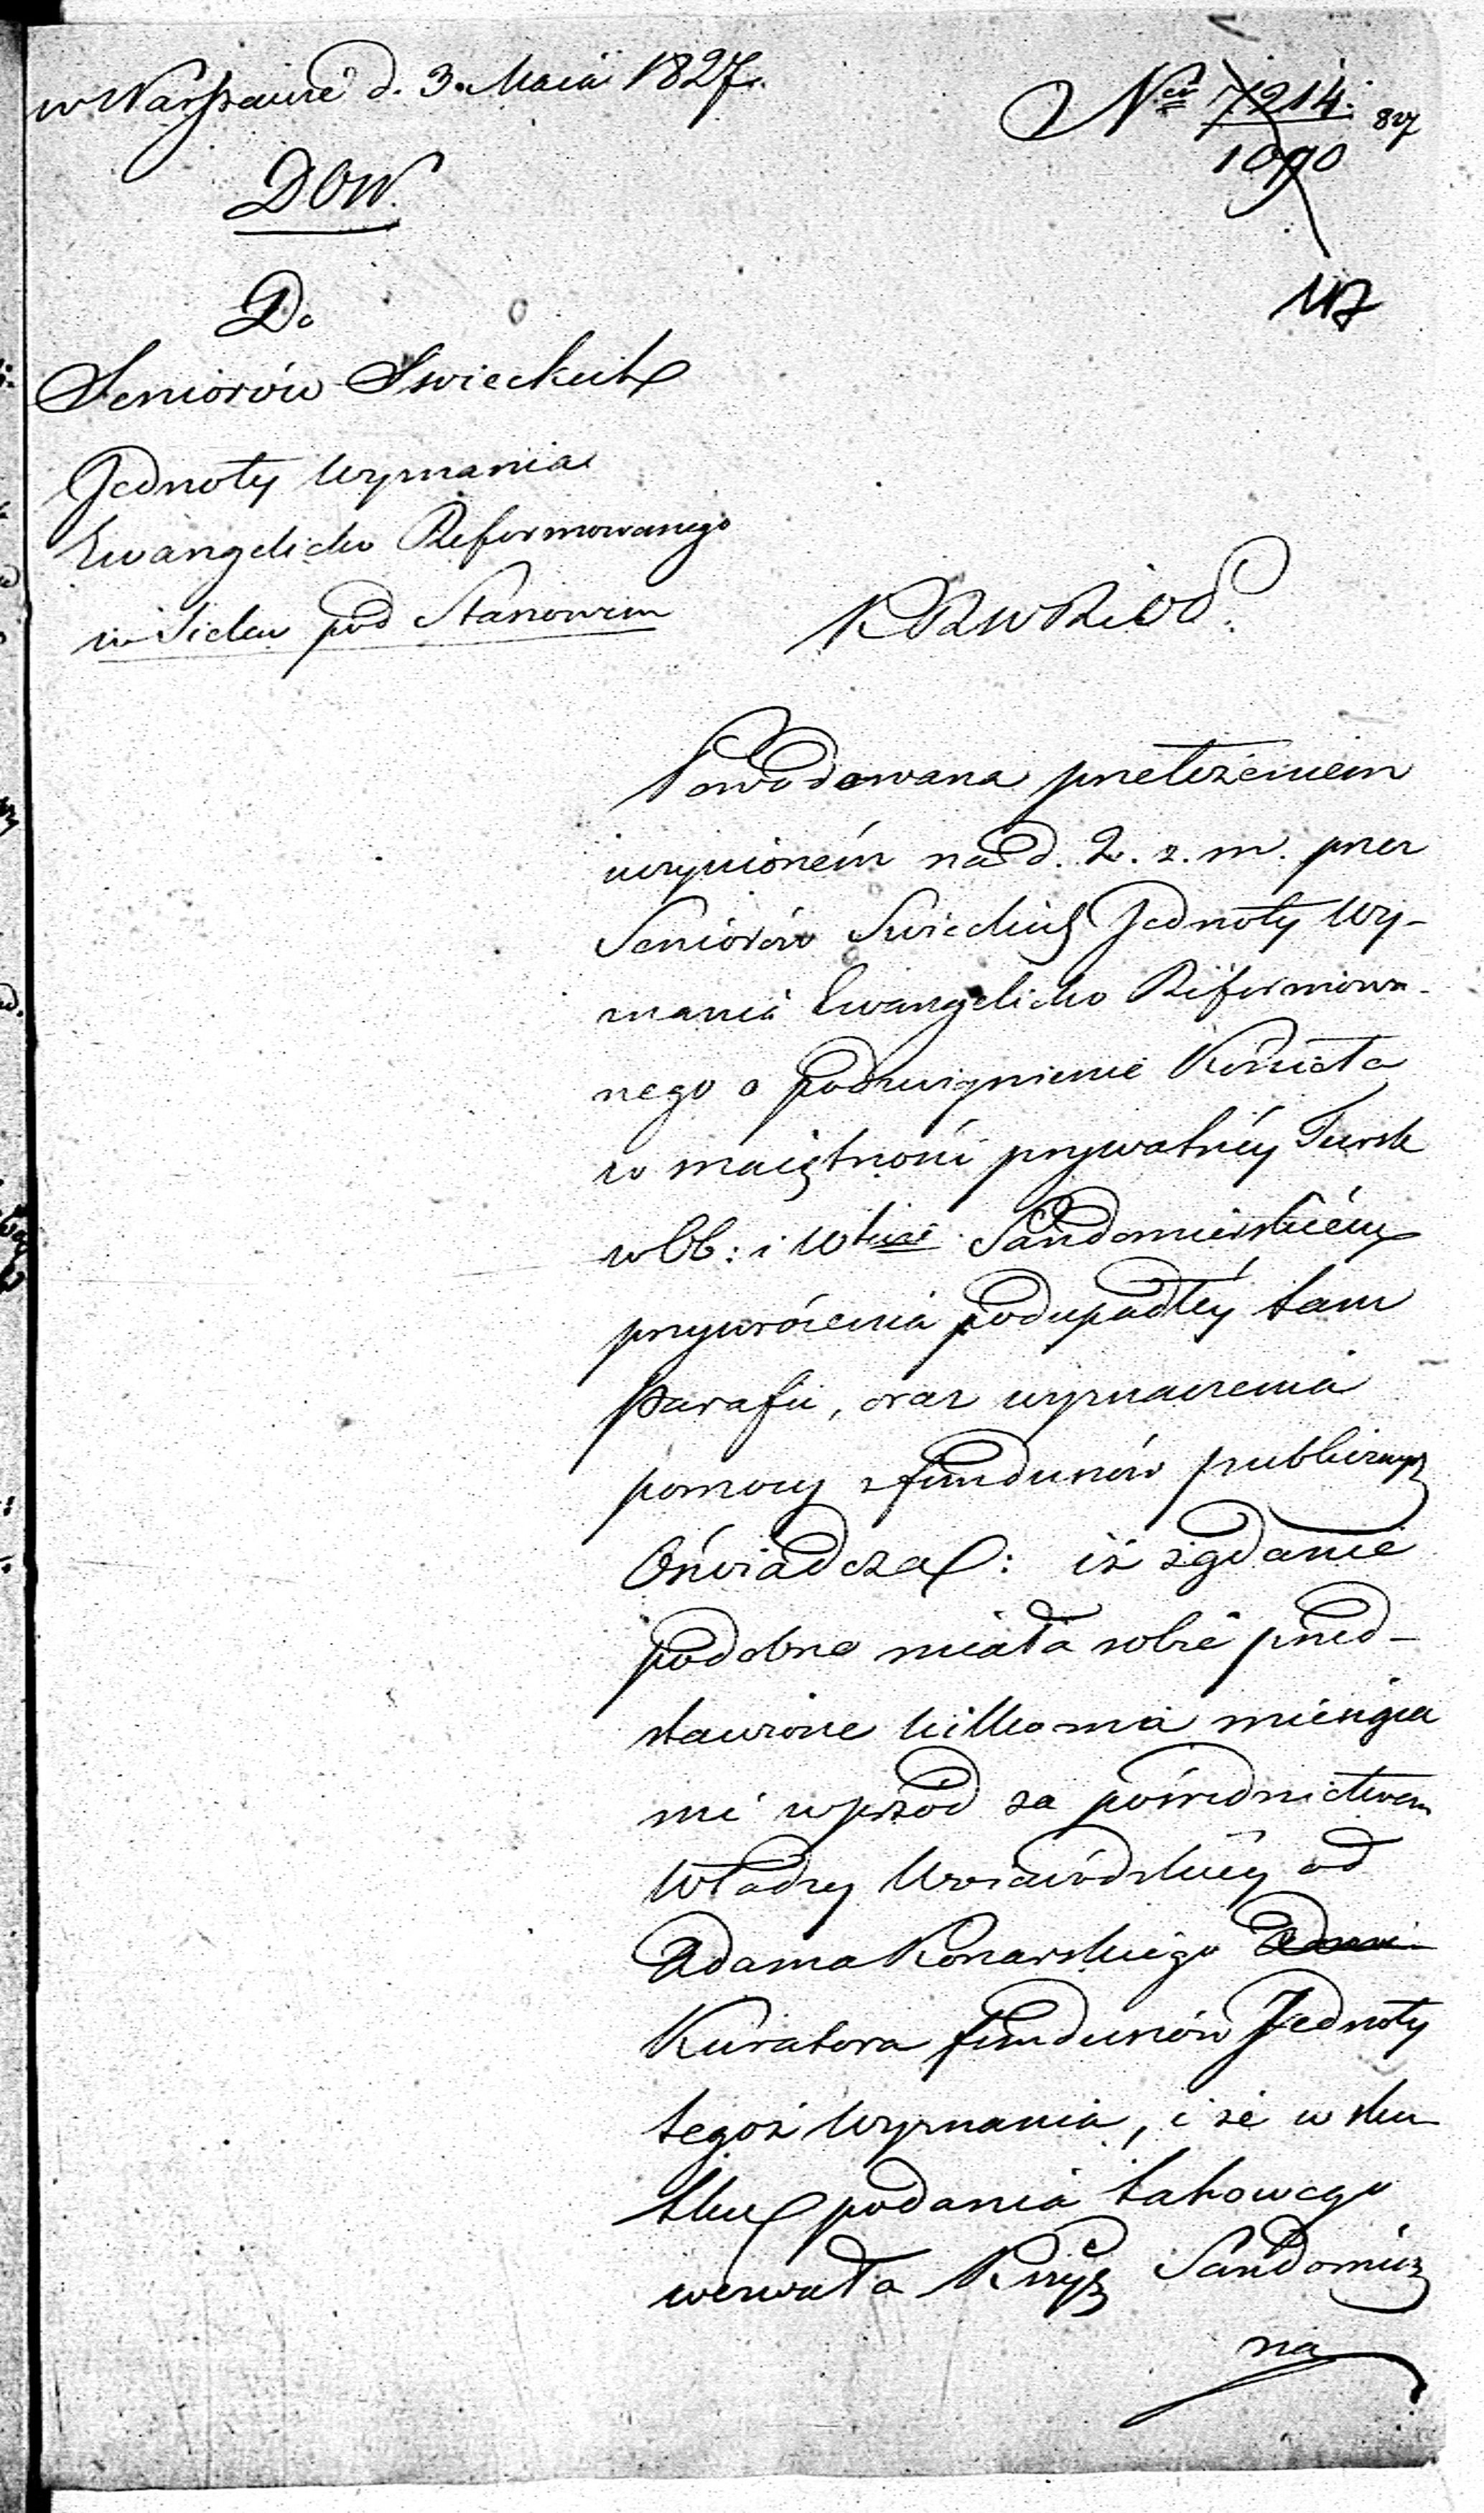 w Warszawie d. 3. Maia 1827.
Nro 7214. 827
1090
117
DOW.
Do
Seniorów Swieckich
Jednoty Wyznania
Ewangelicko Reformowanego
w Sielcu pod Stanowem
KRWRiOP.
Powodowana przełożeniem
uczynioném na d. 2. z. m. przez
Seniorów Swieckich Jednoty Wy-
znania Ewangelicko Reformowa-
nego o podzwignienie Kościoła
w maiętności prywatnéy Tursk
w Ob: i Wtwie Sandomierskiém
przywrócenia podupadłéy tam
Parafii, oraz wyznaczenia
pomocy z funduszów publicznych
Oświadcza: iż żądanie
podobne miała sobie przed-
stawione kilkoma miesiąca
mi wprzód za pośrednictwem
Władzy Woiewódzkiéy od
Adama Konarskiego
Kuratora funduszów Jednoty
tegoż Wyznania, i że w sku
tku podania takowego
wezwała Kssyą Sandomier
na